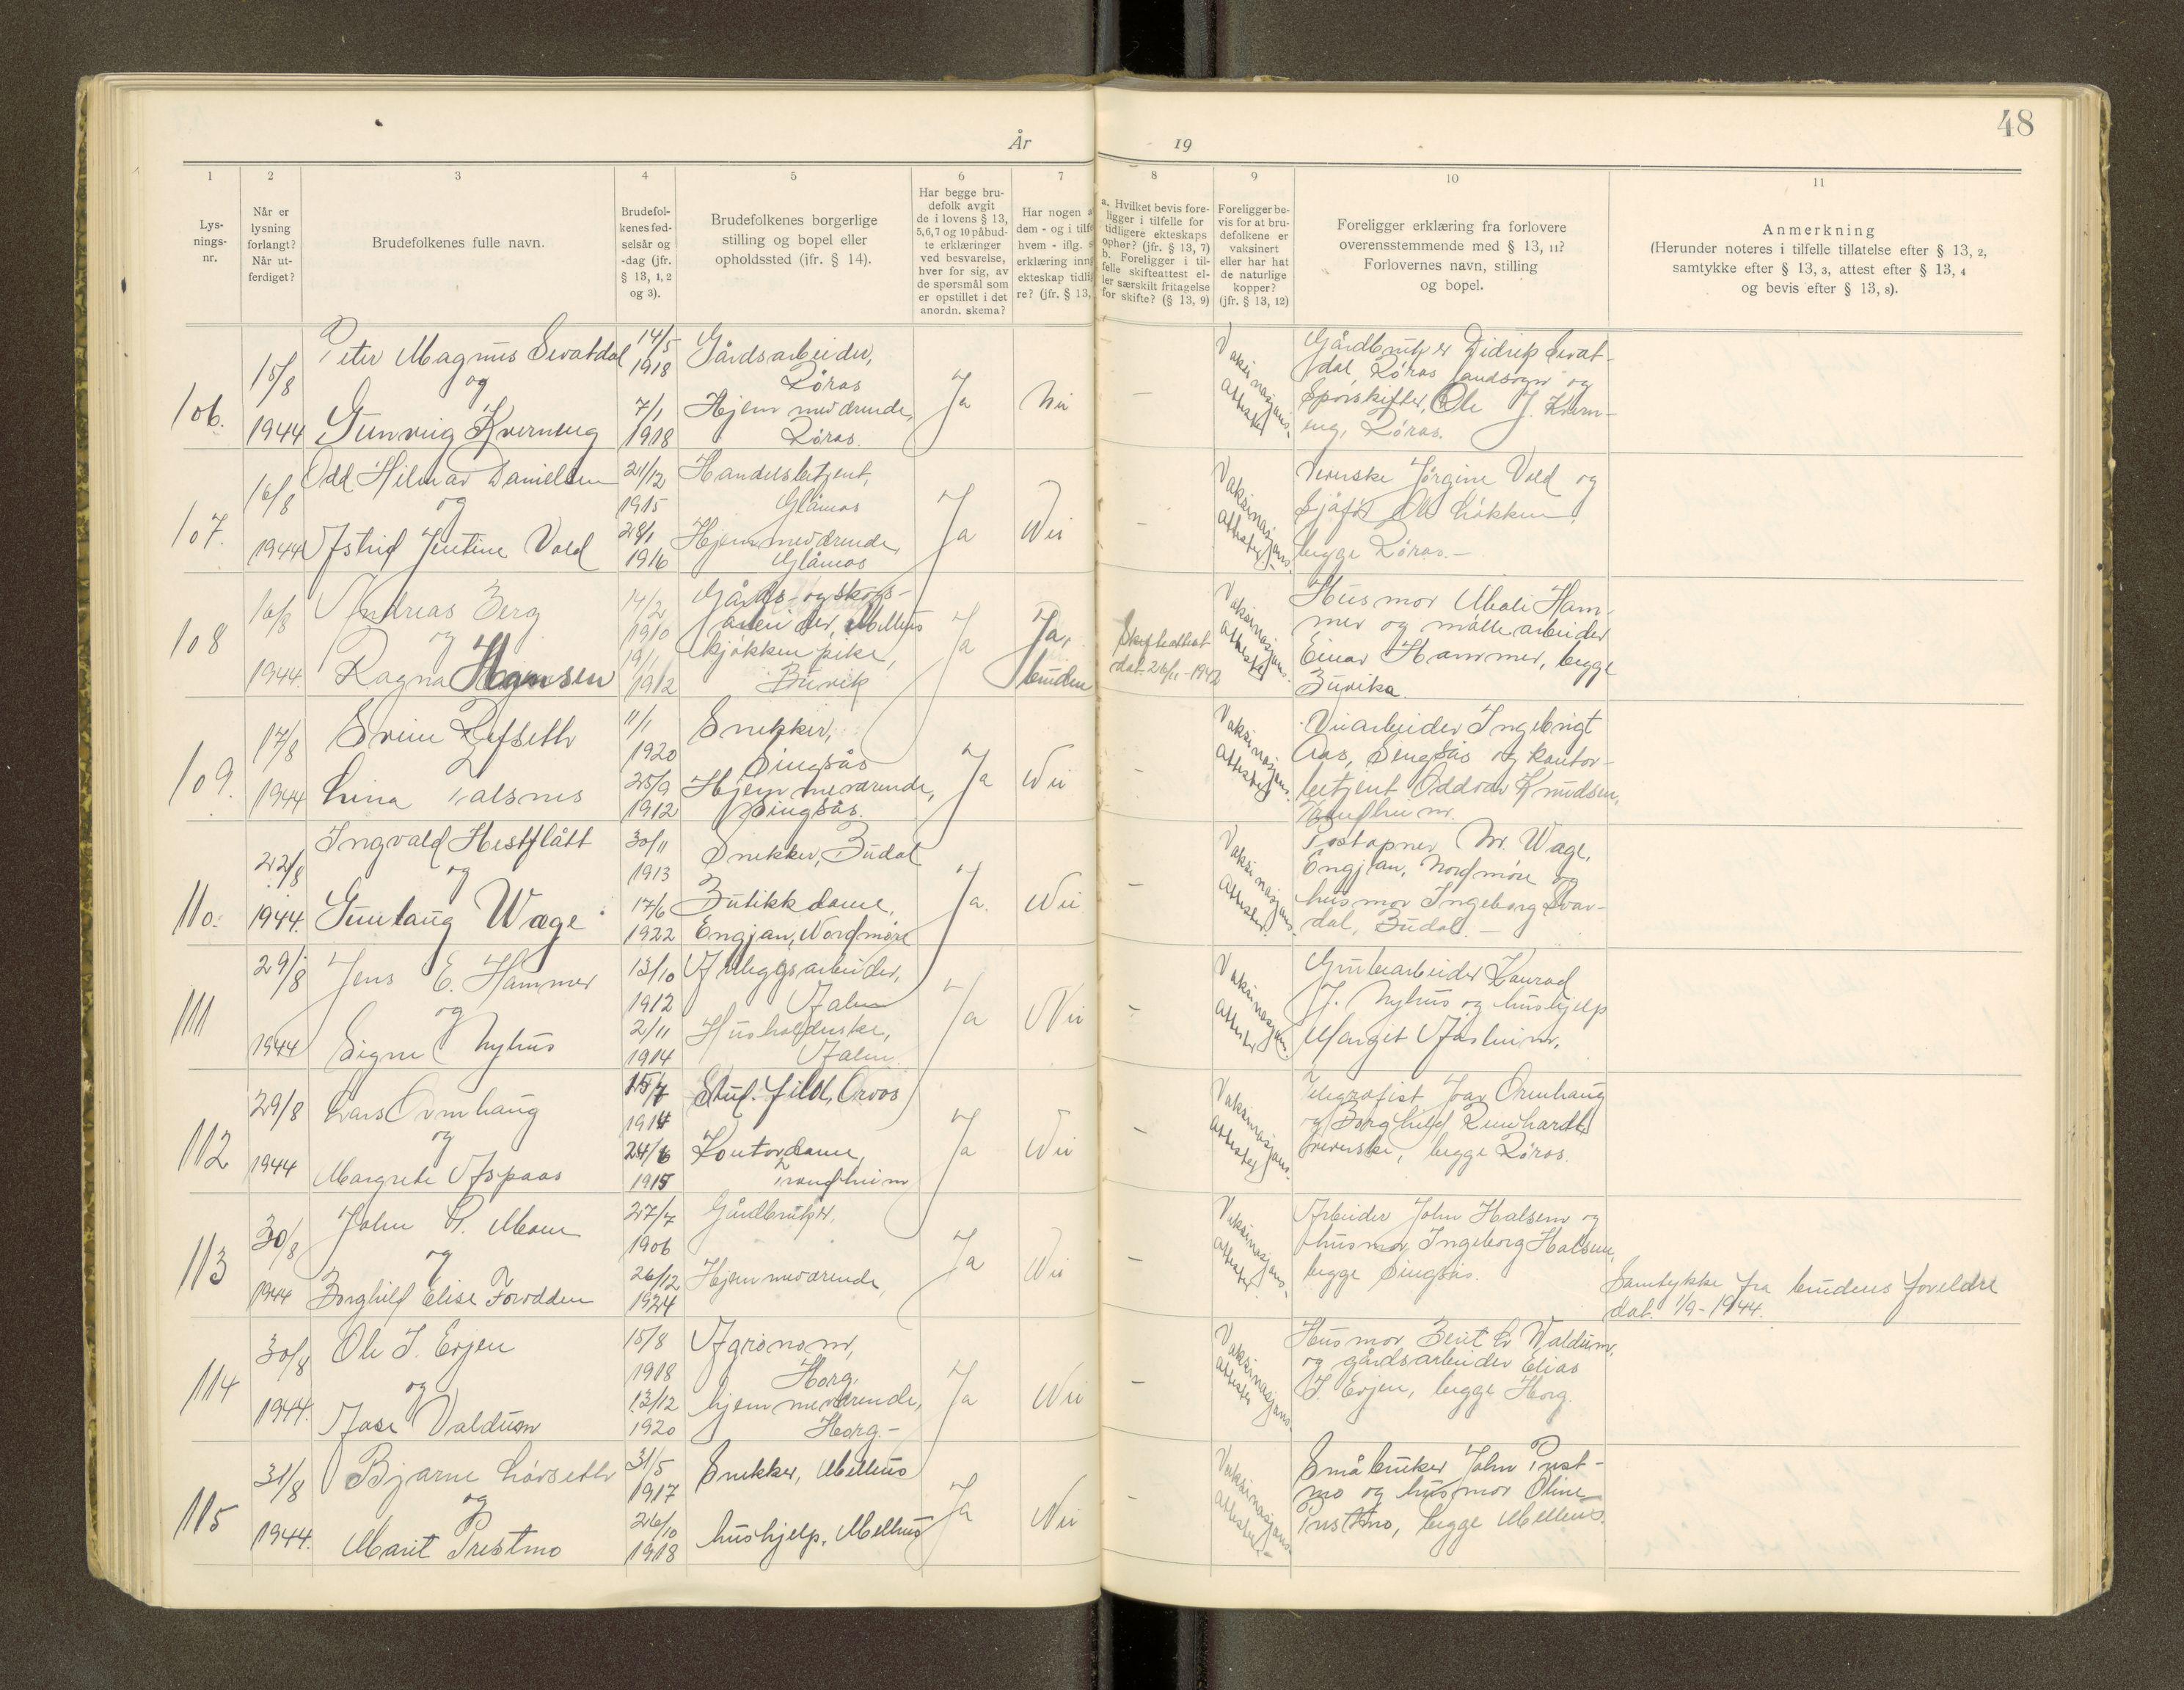 48
År
19
1
Lys-
nings-
nr.
2
Når er
lysning
forlangt?
Når ut-
ferdiget?
3
Brudefolkenes fulle navn.
4
Brudefol-
kenes fød-
selsår og
-dag (jfr.
§ 13, 1, 2
og 3).
5
Brudefolkenes borgerlige
stilling og bopel eller
opholdssted (ifr. § 14).
6
Har begge bru-
defolk avgit
de i lovens § 13,
5,6,7 og 10 påbud-
te erklæringer
ved besvarelse,
hver for sig, av
de spørsmål som
er opstillet i det
anordn. skema?
7
Har nogen a
dem - og i tilf
hvem - iflg. s
erklæring inn
ekteskap tidli
re? (jfr. § 13,
8
a. Hvilket bevis fore-
ligger i tilfelle for
tidligere ekteskaps
ophør? (jfr. § 13, 7)
b. Foreligger i til-
felle skifteattest el-
ler særskilt fritagelse
for skifte? (§ 13, 9)
9
Foreligger be-
vis for at bru-
defolkene er
vaksinert
eller har hat
de naturlige
kopper?
(jfr. § 13, 12)
10
Foreligger erklæring fra forlovere
overensstemmende med § 13, 11?
Forlovernes navn, stilling
og bopel.
11
Anmerkning
(Herunder noteres i tilfelle tillatelse efter § 13, 2,
samtykke efter § 13, 3, attest efter § 13, 4
og bevis efter § 13, 8).
106.
15/8
1944
Peter Magnus Sevatdal
og
Gunveig Kverneng
14/5
1918
7/1
1918
Gårdsarbeider,
Røros
Hjemmeværende,
Røros.
Ja
Nei
—
Vaksinasjons-
attester
Gårdbruker Didrik Sevat-
dal Røros landsogn og
Sporskifter, Ole J. Kvern-
eng, Røros.
107.
16/8
1944
Odd Hilmar Danielsen
og
Astrid Jentine Vold
21/12
1915
28/1
1916
Handelsbetjent,
Glåmos
Hjemmeværende,
Glåmos
Ja
Nei
-
Vaksinasjons-
attester.
Jørgine Vold og
Sjåfør Ole Løkken,
begge Røros.-
108
16/8
1944.
Andreas Berg
og
Ragna Hansen
14/2
1910
19/1
1912
Gårds- og skogs-
arbeider, Melhus
kjøkkenpike,
Buvik
Ja
Ja,
bruden
Skifteattest
dat. 26/11-1942
Vaksinasjons-
attester
Husmor Mali Ham-
mer og møllearbeider
Einar Hammer, begge
Buvika.
109.
17/8
1944
Svein Refseth
Lina Talsnes
11/1
1920
25/9
1912
Snekker,
Singsås
Hjemmeværende,
Singsås.
Ja
Nei
-
Vaksinasjons-
attester.
Veiarbeider Ingebrigt
Aas, Singsås og kontor-
betjent Oddvar Knudsen,
Trondheim.
110.
22/8
1944.
Ingvald Hestflått
og
Gunlaug Wage
30/11
1913
17/6
1922
Snekker, Budal
Butikkdame,
Engjan, Nordmøre
Ja.
Nei
—
Vaksinasjons-
attester.
Poståpner M. Wage,
Engjan, Nordmøre og
husmor Ingeborg Svar-
dal, Budal. —
111
29/8
1944
Jens E. Hammer
og
Signe Nyhus
13/10
1912
2/11
1914
Anleggsarbeider,
Ålen
Husholderske,
Ålen.
Ja
Nei
-
Vaksinasjons-
attester
Grubearbeider Konrad
J. Nyhus og hushjelp
Margit Aasheim.
112
29/8
1944
Lars Ormhaug
og
Margrete Aspaas
15/7
1914
24/6
1915
Stud. filol., Oroos
Kontordame,
Trondheim
Ja
Nei
-
Vaksinasjons-
attester
Telegrafist Joar Ormhaug
og Borghild Reinhardt,
begge Røros.
113
30/8
1944
John P. Moen
og
Borghild Elise Forodden
27/7
1906
26/12
1924
Gårdbruker,
Hjemmeværende,
Ja
Nei
-
Vaksinasjons-
attester.
Arbeider John Halsem og
husmor Ingeborg Halsem,
begge Singsås.
Samtykke fra brudens foreldre
dat. 1/9-1944.
114
30/8
1944.
Ole J. Evjen
og
Aase Valdum
15/8
1918
13/12
1920
Agronom,
Horg.
hjemmeværende,
Horg.-
Ja
Nei
-
Vaksinasjons-
attester
Husmor Berit Valdum,
og gårdsarbeider Elias
J. Evjen, begge Horg.
115
31/8
1944.
Bjarne Løvseth
og
Marit Prestmo
31/5
1917
26/10
1918
Snekker, Melhus
hushjelp, Melhus
Ja
Nei
-
Vaksinasjons-
attester.-
Småbruker John Prest-
mo og husmor Oline
Prestmo, begge Melhus.